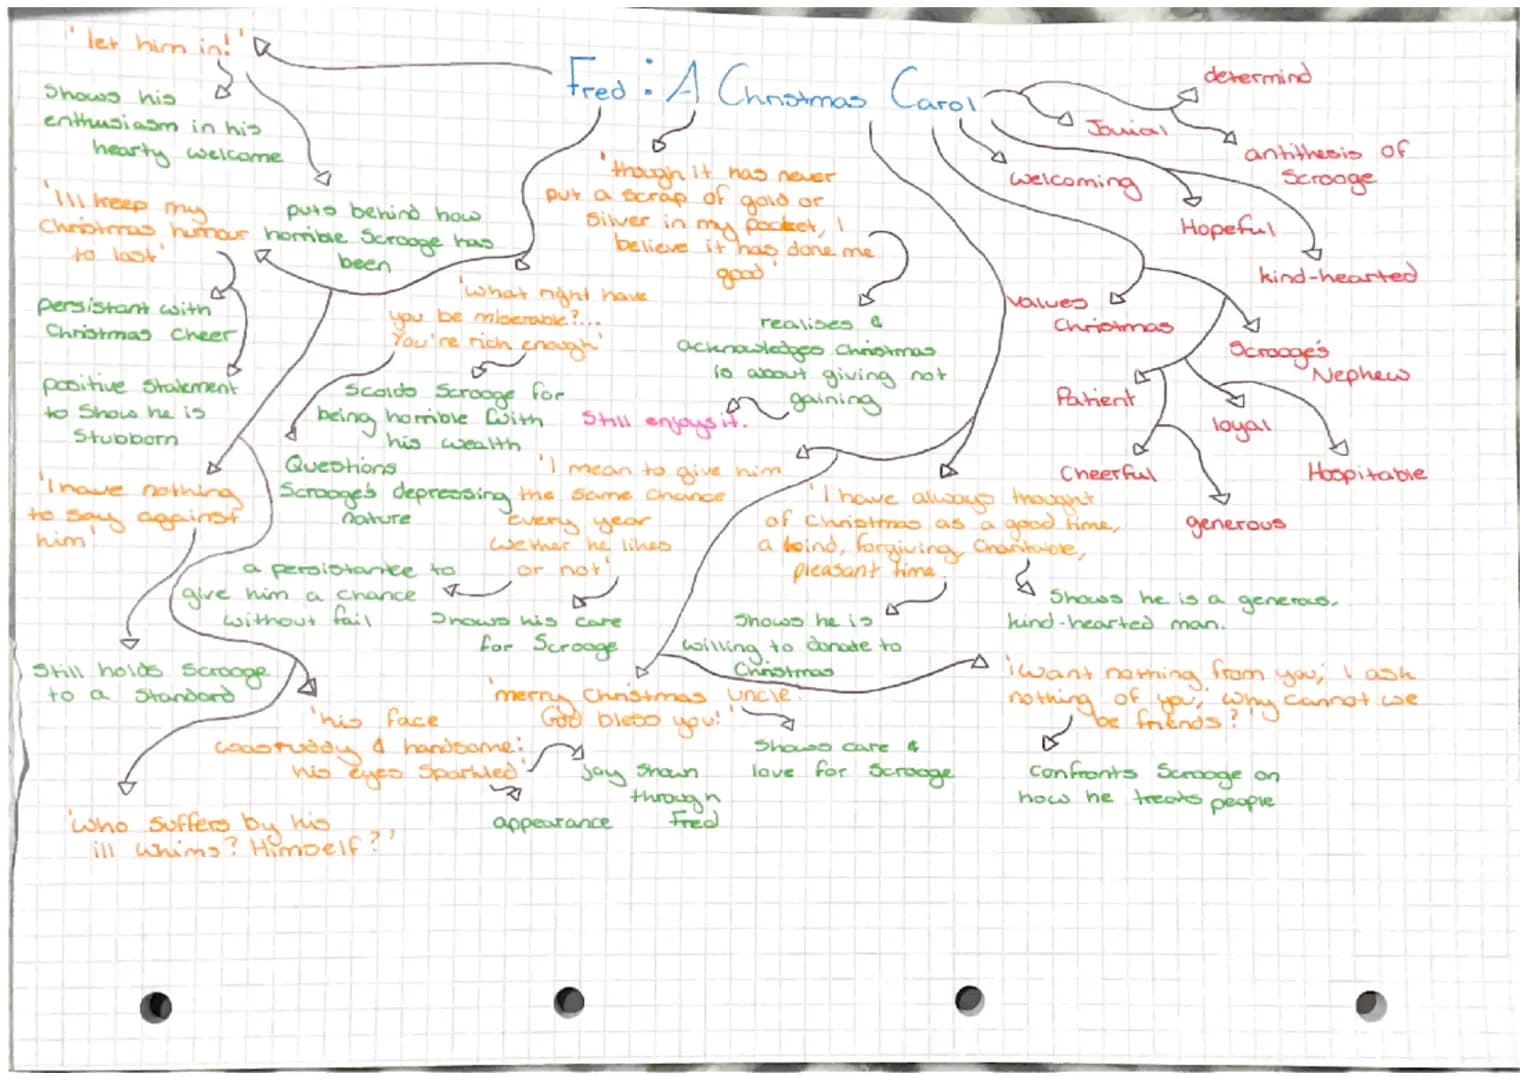 Fred: A Christmas Carol
'let him in!'
Shows his
enthusiasm in his
hearty welcome
puts behind how
horrible Scrooge has
been
'I'll keep my
Christmas humour
to last'
persistant with
Christmas cheer
positive Statement
to Show he is
Stubborn
'I have nothing
to say against
him'
Still holds Scrooge
to a Standard
'who suffers by his
ill whims? Himself?'
'his face
was ruddy & handsome;
his eyes sparkled'
joy shown
through
Fred
appearance
'What right have
you be miserable?...
You're rich enough'
Scolds Scrooge for
being horrible with
his wealth
Questions
Scrooge's depressing
nature
'though it has never
put a scrap of gold or
silver in my pocket, I
believe it has done me
good'
realises &
acknowledges Christmas
is about giving not
gaining
Still enjoys it.
'I mean to give him
the same chance
every year
wether he likes
or not'
a persistance to
give him a chance
without fail
Shows his care
for Scrooge
'I have always thought
of Christmas as a good time,
a kind, forgiving, charitable,
pleasant time
Shows he is
willing to donate to
Christmas
Shows he is a generous,
kind-hearted man.
'merry Christmas uncle.
God bless you!'
Shows care &
love for Scrooge
'i want nothing from you; I ask
nothing of you; why cannot we
be friends?'
Confronts Scrooge on
how he treats people
determind
Jovial
antithesis of
Scrooge
Welcoming
Hopeful
kind-hearted
Values
Christmas
Scrooge's
Nephew
Patient
loyal
Cheerful
Hospitable
generous